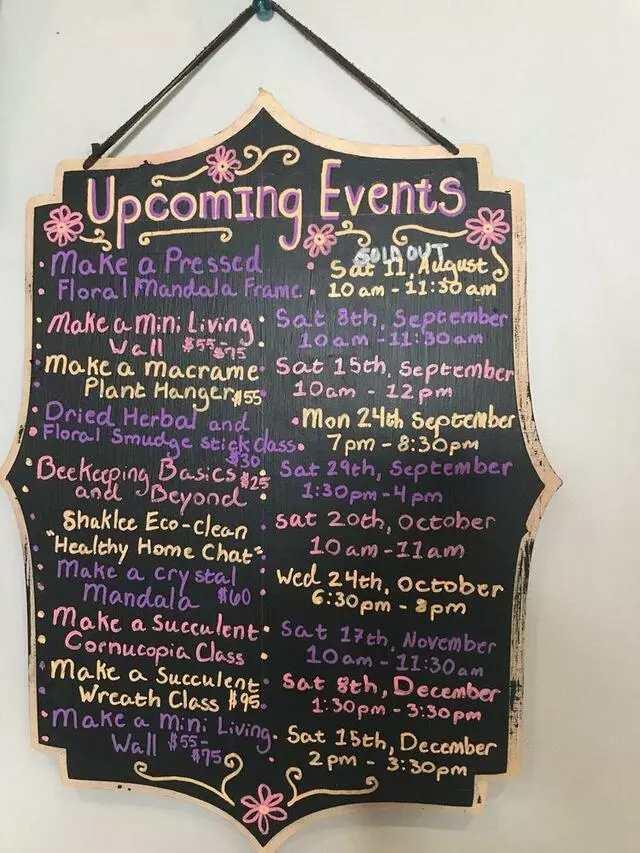 Upcoming Events
SOLD OUT
Make a Pressed
Floral Mandala Frame
Sat 11, August
10 am - 11:30 am
Make a mini Living
Wall $55-$75
Sat 8th, September
10 am - 11:30 am
Make a macrame
Plant Hanger $55
Sat 15th, September
10am - 12 pm
Dried Herbal and
Floral Smudge stick class
$30
Mon 24th September
7pm - 8:30pm
Beekeeping Basics $25
and Beyond
Sat 29th, September
1:30pm - 4 pm
Shaklee Eco-clean
"Healthy Home Chat"
Sat 20th, October
10am - 11am
Make a crystal
Mandala $60
Wed 24th, October
6:30pm - 8pm
Make a Succulent
Cornucopia Class
Sat 17th, November
10am - 11:30am
Make a Succulent
Wreath Class $95
Sat 8th, December
1:30pm - 3:30pm
Make a mini Living
Wall $55-
$75
Sat 15th, December
2pm - 3:30pm